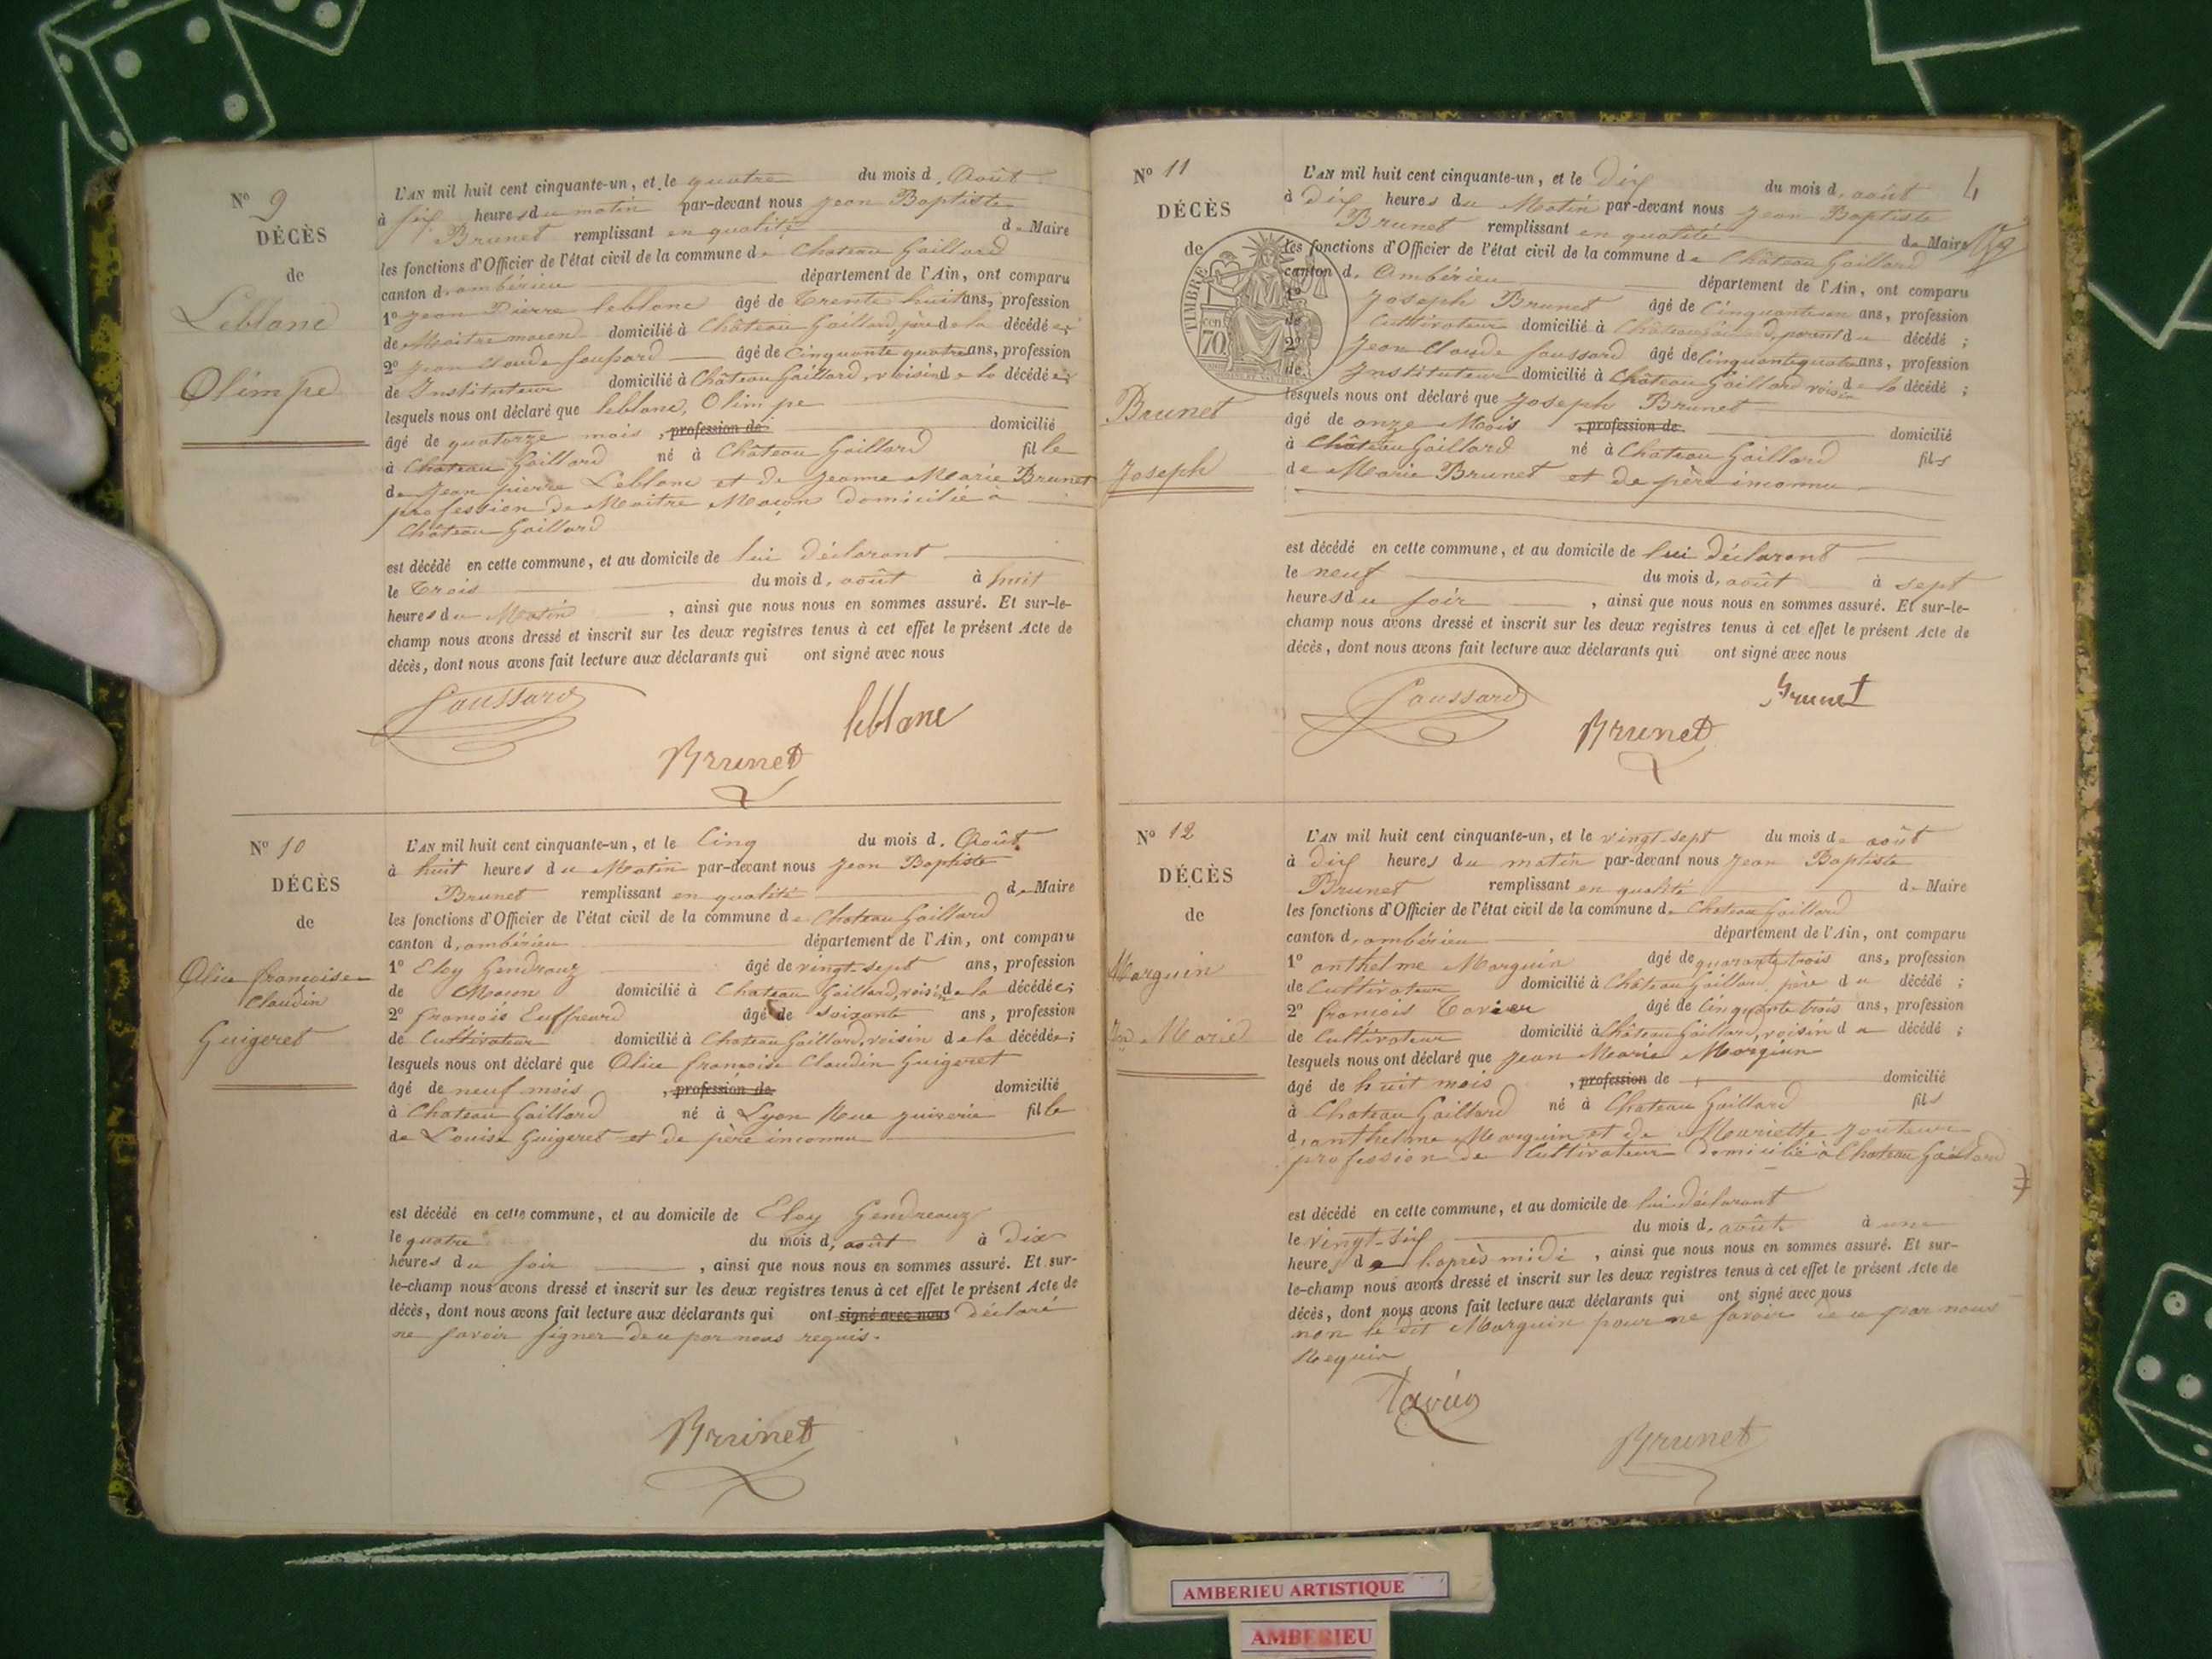 N° 9
DÉCÈS
de
Leblanc
Olimpe
L'AN mil huit cent cinquante-un, et le quatre du mois d'Août
à six heures du matin par-devant nous Jean Baptiste
Brunet remplissant en qualité de Maire
les fonctions d'Officier de l'état civil de la commune de Chateau Gaillard
canton d'ambérieu département de l'Ain, ont comparu
1° Jean Pierre leblanc âgé de trente huit ans, profession
de Maitre macon domicilié à Château Gaillard, père de la décédée;
2° Jean Claude Faussard âgé de Cinquante quatre ans, profession
de Instituteur domicilié à Château Gaillard, voisin de la décédée;
lesquels nous ont déclaré que leblanc, Olimpe
âgé de quatorze mois, profession de domicilié
à Chateau Gaillard né à Château Gaillard fille
de Jean pierre Leblanc et de Jeanne Marie Brunet
profession de Maitre Maçon domicilié a
Château Gaillard
est décédé en cette commune, et au domicile de lui déclarant
le trois du mois d'août à huit
heures du Matin, ainsi que nous nous en sommes assuré. Et sur-le-
champ nous avons dressé et inscrit sur les deux registres tenus à cet effet le présent Acte de
décès, dont nous avons fait lecture aux déclarants qui ont signé avec nous
Faussard
leblanc
Brunet
N° 10
DÉCÈS
de
Alice françoise
Claudin
Guigeret
L'AN mil huit cent cinquante-un, et le Cinq du mois d'Août
à huit heures du Matin par-devant nous Jean Baptiste
Brunet remplissant en qualité de Maire
les fonctions d'Officier de l'état civil de la commune de Chateau Gaillard
canton d'ambérieu département de l'Ain, ont comparu
1° Eloy Gendreaux âgé de vingt-sept ans, profession
de Macon domicilié à Chateau Gaillard, voisin de la décédée;
2° françois âgé de soixante ans, profession
de Cultivateur domicilié à Chateau Gaillard, voisin de la décédée;
lesquels nous ont déclaré que Alice françoise Claudin Guigeret
âgé de neuf mois, profession de domicilié
à Chateau Gaillard né à Lyon Rue juiverie fille
de Louise Guigeret et de père inconnu
est décédé en cette commune, et au domicile de Eloy Gendreaux
le quatre du mois d'août à dix
heures du soir, ainsi que nous nous en sommes assuré. Et sur-
le-champ nous avons dressé et inscrit sur les deux registres tenus à cet effet le présent Acte de
décès, dont nous avons fait lecture aux déclarants qui ont signé avec nous déclaré
ne savoir signer de ce par nous requis.
Brunet
N° 11
DÉCÈS
de
TIMBRE
70 cen
Brunet
Joseph
4
L'AN mil huit cent cinquante-un, et le dix du mois d'août
à dix heures du Matin par-devant nous Jean Baptiste
Brunet remplissant en qualité de Maire
les fonctions d'Officier de l'état civil de la commune de Château Gaillard
canton d'Ambérieu département de l'Ain, ont comparu
1° Joseph Brunet âgé de Cinquante un ans, profession
de Cultivateur domicilié à Château Gaillard, parent du décédé;
2° Jean Claude faussard âgé de Cinquante quatre ans, profession
de Instituteur domicilié à Château Gaillard voisin de la décédé;
lesquels nous ont déclaré que Joseph Brunet
âgé de onze Mois, profession de domicilié
à Château Gaillard né à Chateau Gaillard fils
de Marie Brunet et de père inconnu
est décédé en cette commune, et au domicile de lui déclarant
le neuf du mois d'août à sept
heures du soir, ainsi que nous nous en sommes assuré. Et sur-le-
champ nous avons dressé et inscrit sur les deux registres tenus à cet effet le présent Acte de
décès, dont nous avons fait lecture aux déclarants qui ont signé avec nous
Faussard
Brunet
Brunet
N° 12
DÉCÈS
de
Marguin
Jean Marie
L'AN mil huit cent cinquante-un, et le vingt-sept du mois de août
à dix heures du matin par-devant nous Jean Baptiste
Brunet remplissant en qualité de Maire
les fonctions d'Officier de l'état civil de la commune de Chateau Gaillard
canton d'ambérieu département de l'Ain, ont comparu
1° anthelme Marguin âgé de quarante trois ans, profession
de Cultivateur domicilié à Château Gaillard père du décédé;
2° francois Tavier âgé de Cinquante trois ans, profession
de Cultivateur domicilié à Château Gaillard, voisin du décédé;
lesquels nous ont déclaré que Jean Marie Marguin
âgé de huit mois, profession de domicilié
à Chateau Gaillard né à Chateau Gaillard fils
d'anthelme Marguin et de Mariette
profession de Cultivateur domicilié à Chateau Gaillard
est décédé en cette commune, et au domicile de lui déclarant
le vingt-six du mois d'août à une
heure de l'après midi, ainsi que nous nous en sommes assuré. Et sur-
le-champ nous avons dressé et inscrit sur les deux registres tenus à cet effet le présent Acte de
décès, dont nous avons fait lecture aux déclarants qui ont signé avec nous
non le dit Marguin pour ne savoir de ce par nous
Requis
Brunet
AMBERIEU ARTISTIQUE
AMBERIEU